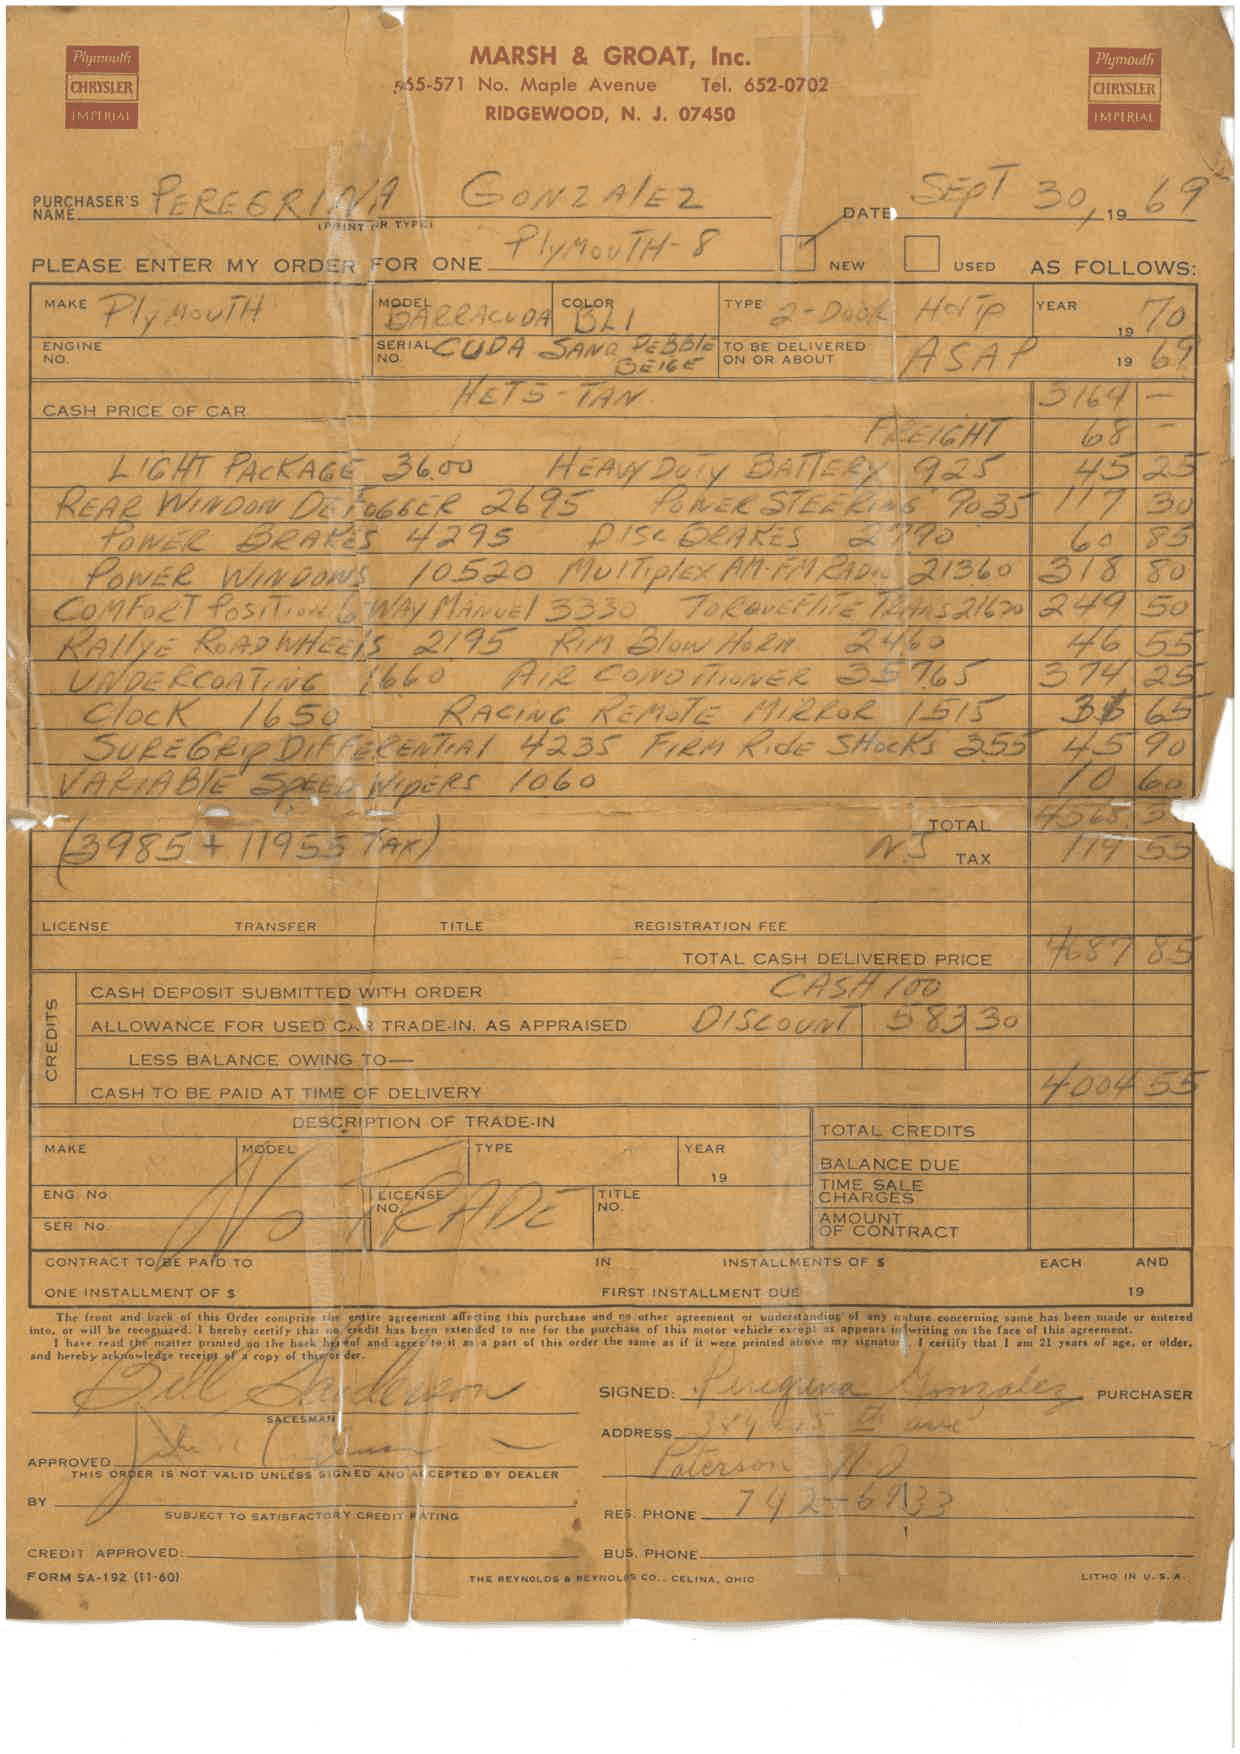 Plymouth
CHRYSLER
IMPERIAL
MARSH & GROAT, Inc.
565-571 No. Maple Avenue Tel. 652-0702
RIDGEWOOD, N. J. 07450
Plymouth
CHRYSLER
IMPERIAL
PURCHASER'S NAME PEREGRINA GONZALEZ DATE SEPT 30, 19 69
(PRINT OR TYPE)
PLEASE ENTER MY ORDER FOR ONE PLYMOUTH-8 NEW USED AS FOLLOWS:
MAKE PLYMOUTH MODEL BARRACUDA COLOR BL1 TYPE 2-DOOR HDTP YEAR 19 70
ENGINE NO. SERIAL NO. CUDA SAND PEBBLE BEIGE TO BE DELIVERED ON OR ABOUT ASAP 19 69
CASH PRICE OF CAR HET5-TAN 3164 —
FREIGHT 68 —
LIGHT PACKAGE 3600 HEAVY DUTY BATTERY 925 45 25
REAR WINDOW DEFOGGER 2695 POWER STEERING 9035 117 30
POWER BRAKES 4295 DISC BRAKES 2790 60 85
POWER WINDOWS 10520 MULTIPLEX AM-FM RADIO 21360 318 80
COMFORT POSITION 6 WAY MANUEL 3330 TORQUEFLITE TRANS 21620 249 50
RALLYE ROAD WHEELS 2195 RIM BLOW HORN 2460 46 55
UNDERCOATING 1660 AIR CONDITIONER 35765 374 25
CLOCK 1650 RACING REMOTE MIRROR 1515 31 65
SUREGRIP DIFFERENTIAL 4235 FIRM RIDE SHOCKS 355 45 90
VARIABLE SPEED WIPERS 1060 10 60
TOTAL
(3985 + 11955 TAX) NJ TAX 119 55
LICENSE TRANSFER TITLE REGISTRATION FEE
TOTAL CASH DELIVERED PRICE 4687 85
CREDITS
CASH DEPOSIT SUBMITTED WITH ORDER CASH 100
ALLOWANCE FOR USED CAR TRADE-IN, AS APPRAISED DISCOUNT 583 30
LESS BALANCE OWING TO—
CASH TO BE PAID AT TIME OF DELIVERY 4004 55
DESCRIPTION OF TRADE-IN TOTAL CREDITS
MAKE MODEL TYPE YEAR 19 BALANCE DUE
ENG. No. LICENSE NO. TITLE NO. TIME SALE CHARGES
NO TRADE
SER No. AMOUNT OF CONTRACT
CONTRACT TO BE PAID TO IN INSTALLMENTS OF $ EACH AND
ONE INSTALLMENT OF $ FIRST INSTALLMENT DUE 19
The front and back of this Order comprise the entire agreement affecting this purchase and no other agreement or understanding of any nature concerning same has been made or entered
into, or will be recognized. I hereby certify that no credit has been extended to me for the purchase of this motor vehicle except as appears in writing on the face of this agreement.
I have read the matter printed on the back hereof and agree to it as a part of this order the same as if it were printed above my signature. I certify that I am 21 years of age, or older,
and hereby acknowledge receipt of a copy of this order.
Bill Sanderson SIGNED: Peregrina Gonzalez PURCHASER
SALESMAN
ADDRESS 5th ave
APPROVED Paterson N.J.
THIS ORDER IS NOT VALID UNLESS SIGNED AND ACCEPTED BY DEALER
BY RES. PHONE 742-6933
SUBJECT TO SATISFACTORY CREDIT RATING
CREDIT APPROVED: BUS. PHONE
FORM SA-192 (11-60) THE REYNOLDS & REYNOLDS CO., CELINA, OHIO LITHO IN U.S.A.